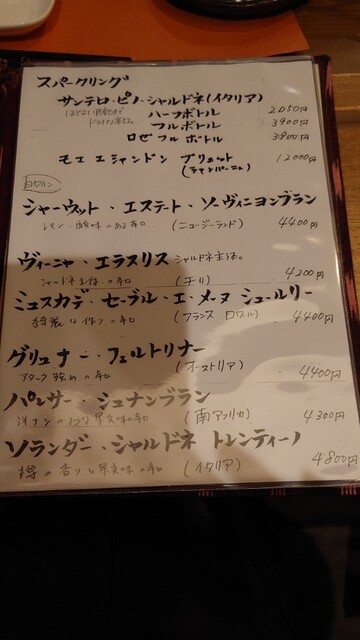 スパークリング
サンテロ・ピノ・シャルドネ(イタリア)
ハーフボトル 2050円
フルボトル 3900円
ロゼフルボトル 3900円
モエ エ シャンドン ブリュット 12000円
(シャンパーニュ)
白ワイン
シャーウッド・エステート・ソーヴィニヨンブラン
(ニュージーランド) 4400円
ヴィーニャ・エラスリス シャルドネ主体。
シャルドネ主体の辛口 (チリ) 4200円
ミュスカデ・セーブル・エ・メーヌ シュールリー
綺麗な作りの辛口 (フランス ロワール) 4400円
グリュナー・フェルトリナー
アタック強めの辛口 (オーストリア) 4400円
パルサー・シュナンブラン
(南アフリカ) 4300円
ソランダー・シャルドネ トレンティーノ
樽の香りと果実味の辛口 (イタリア) 4800円